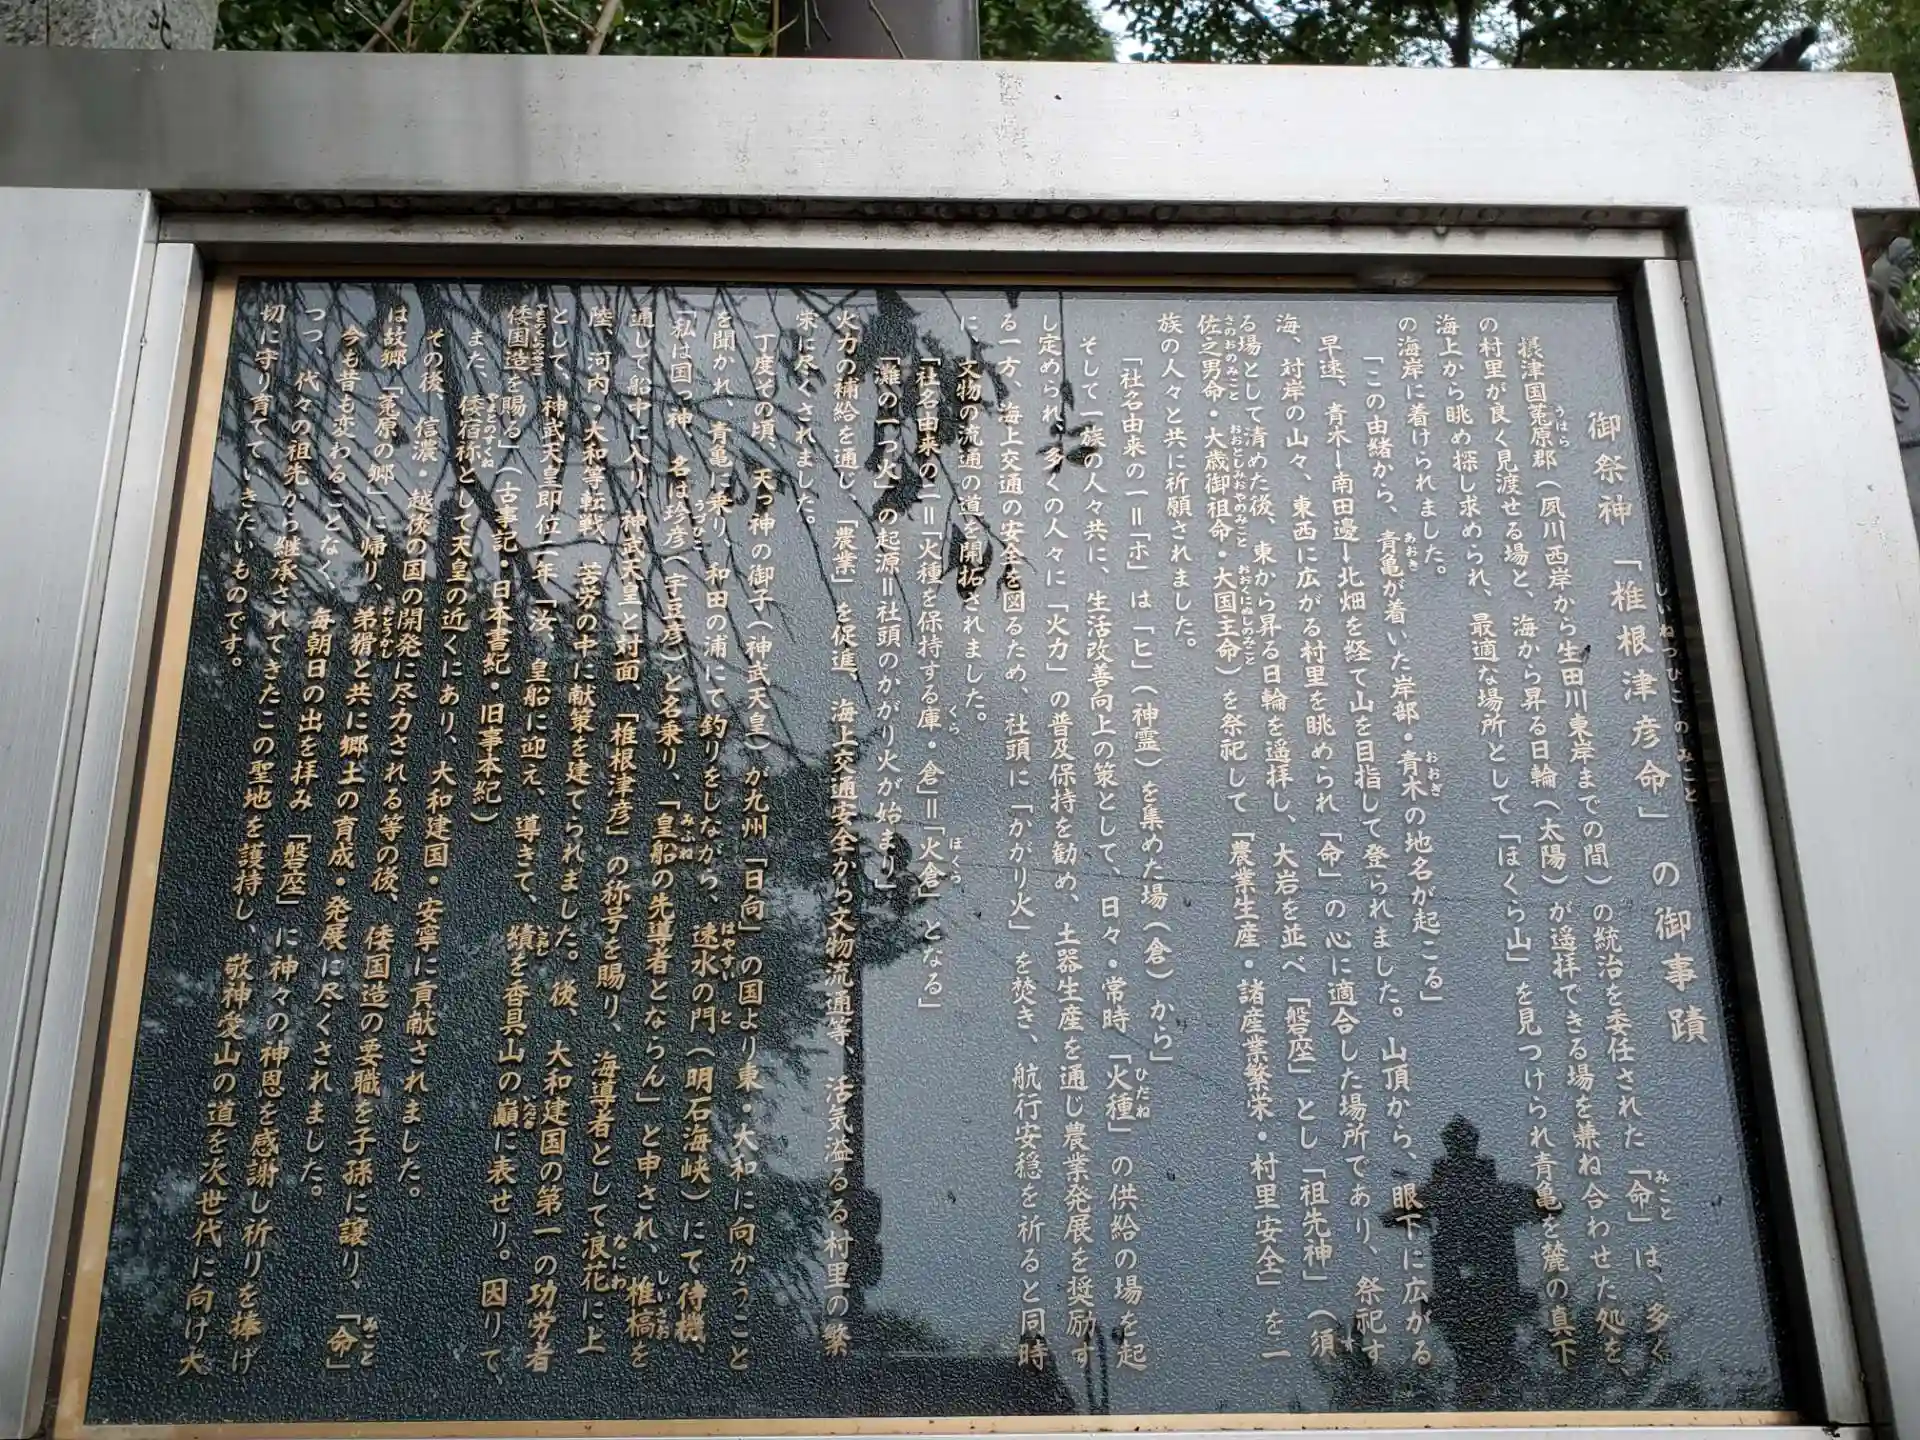 御祭神 「椎根津彦命」 の御事蹟
摂津国菟原郡（夙川西岸から生田川東岸までの間）の統治を委任された「命」は、多く
の村里が良く見渡せる場と、海から昇る日輪（太陽）が遥拝できる場を兼ね合わせた処を、
海上から眺め探し求められ、最適な場所として「ほくら山」を見つけられ青亀を麓の真下
の海岸に着けられました。
「この由緒から、青亀が着いた岸部・青木の地名が起こる」
早速、青木ー南田邊ー北畑を経て山を目指して登られました。山頂から、眼下に広がる
海、対岸の山々、東西に広がる村里を眺められ「命」の心に適合した場所であり、祭祀す
る場として清めた後、東から昇る日輪を遥拝し、大岩を並べ「磐座」とし「祖先神」（須
佐之男命・大歳御祖命・大国主命）を祭祀して「農業生産・諸産業繁栄・村里安全」を一
族の人々と共に祈願されました。
「社名由来の一＝「ホ」は「ヒ」（神霊）を集めた場（倉）から」
そして一族の人々共に、生活改善向上の策として、日々・常時「火種」の供給の場を起
し定められ、多くの人々に「火力」の普及保持を勧め、土器生産を通じ農業発展を奨励す
る一方、海上交通の安全を図るため、社頭に「かがり火」を焚き、航行安穏を祈ると同時
に、文物の流通の道を開拓されました。
「社名由来の二＝「火種を保持する庫・倉」＝「火倉」となる」
「灘の一つ火」の起源＝社頭のかがり火が始まり」
火力の補給を通じ、「農業」を促進、海上交通安全から文物流通等、活気溢るる村里の繁
栄に尽くされました。
丁度その頃、天っ神の御子（神武天皇）が九州「日向」の国より東・大和に向かうこと
を聞かれ、青亀に乗り、和田の浦にて釣りをしながら、速水の門（明石海峡）にて待機、
「私は国っ神、名は珍彦（宇豆彦）と名乗り、「皇船の先導者とならん」と申され、椎槁を
通して船中に入り、神武天皇と対面、「椎根津彦」の称号を賜り、海導者として浪花に上
陸、河内・大和等転戦、苦労の中に献策を建てられました。後、大和建国の第一の功労者
として、神武天皇即位二年「汝、皇船に迎え、導きて、績を香具山の巓に表せり。因りて、
倭国造を賜る」（古事記・日本書紀・旧事本紀）
また、倭宿祢として天皇の近くにあり、大和建国・安寧に貢献されました。
その後、信濃・越後の国の開発に尽力される等の後、倭国造の要職を子孫に譲り、「命」
は故郷「菟原の郷」に帰り、弟猾と共に郷土の育成・発展に尽くされました。
今も昔も変わることなく、毎朝日の出を拝み「磐座」に神々の神恩を感謝し祈りを捧げ
つつ、代々の祖先から継承されてきたこの聖地を護持し、敬神愛山の道を次世代に向け大
切に守り育てていきたいものです。